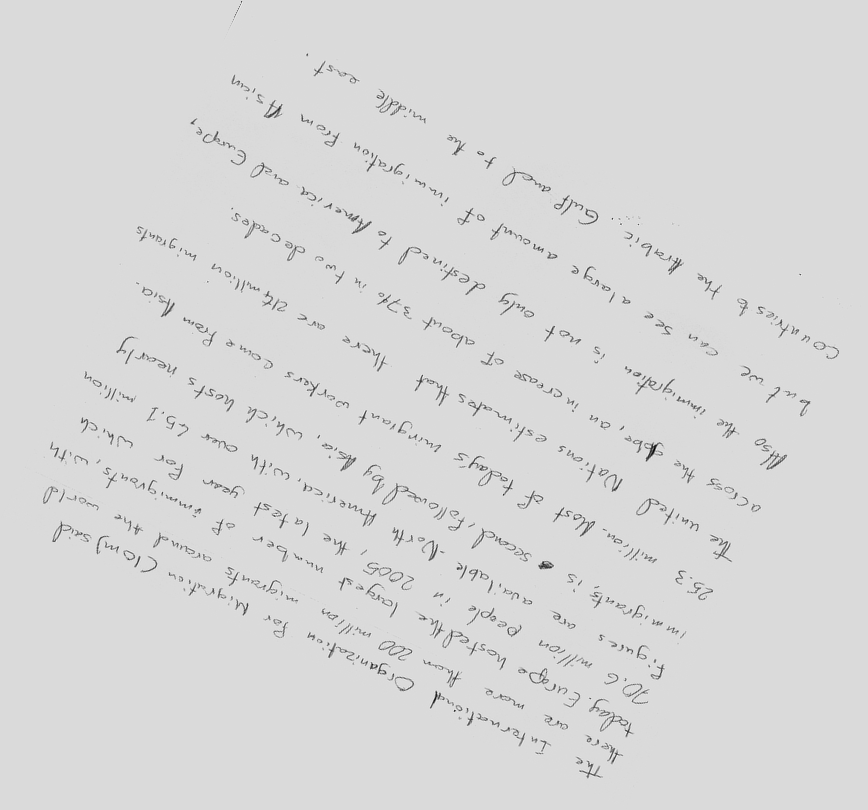 The International Organization for Migration (IOM) said
there are more than 200 million migrants around the world
today. Europe hosted the largest number of immigrants, with
70.6 million people in 2005, the latest year for which
figures are available. North America, with over 45.1 million
immigrants, is second, followed by Asia, which hosts nearly
25.3 million. Most of today's mingiant workers come from Asia.
The united Nations estimates that there are 214 million migrants
across the globe, an increase of about 37% in two decades.
Also the immigration is not only destined to America and Europe,
but we can see a large amount of immigration from Asian
Countries to the Arabic Gulf and to the middle east.